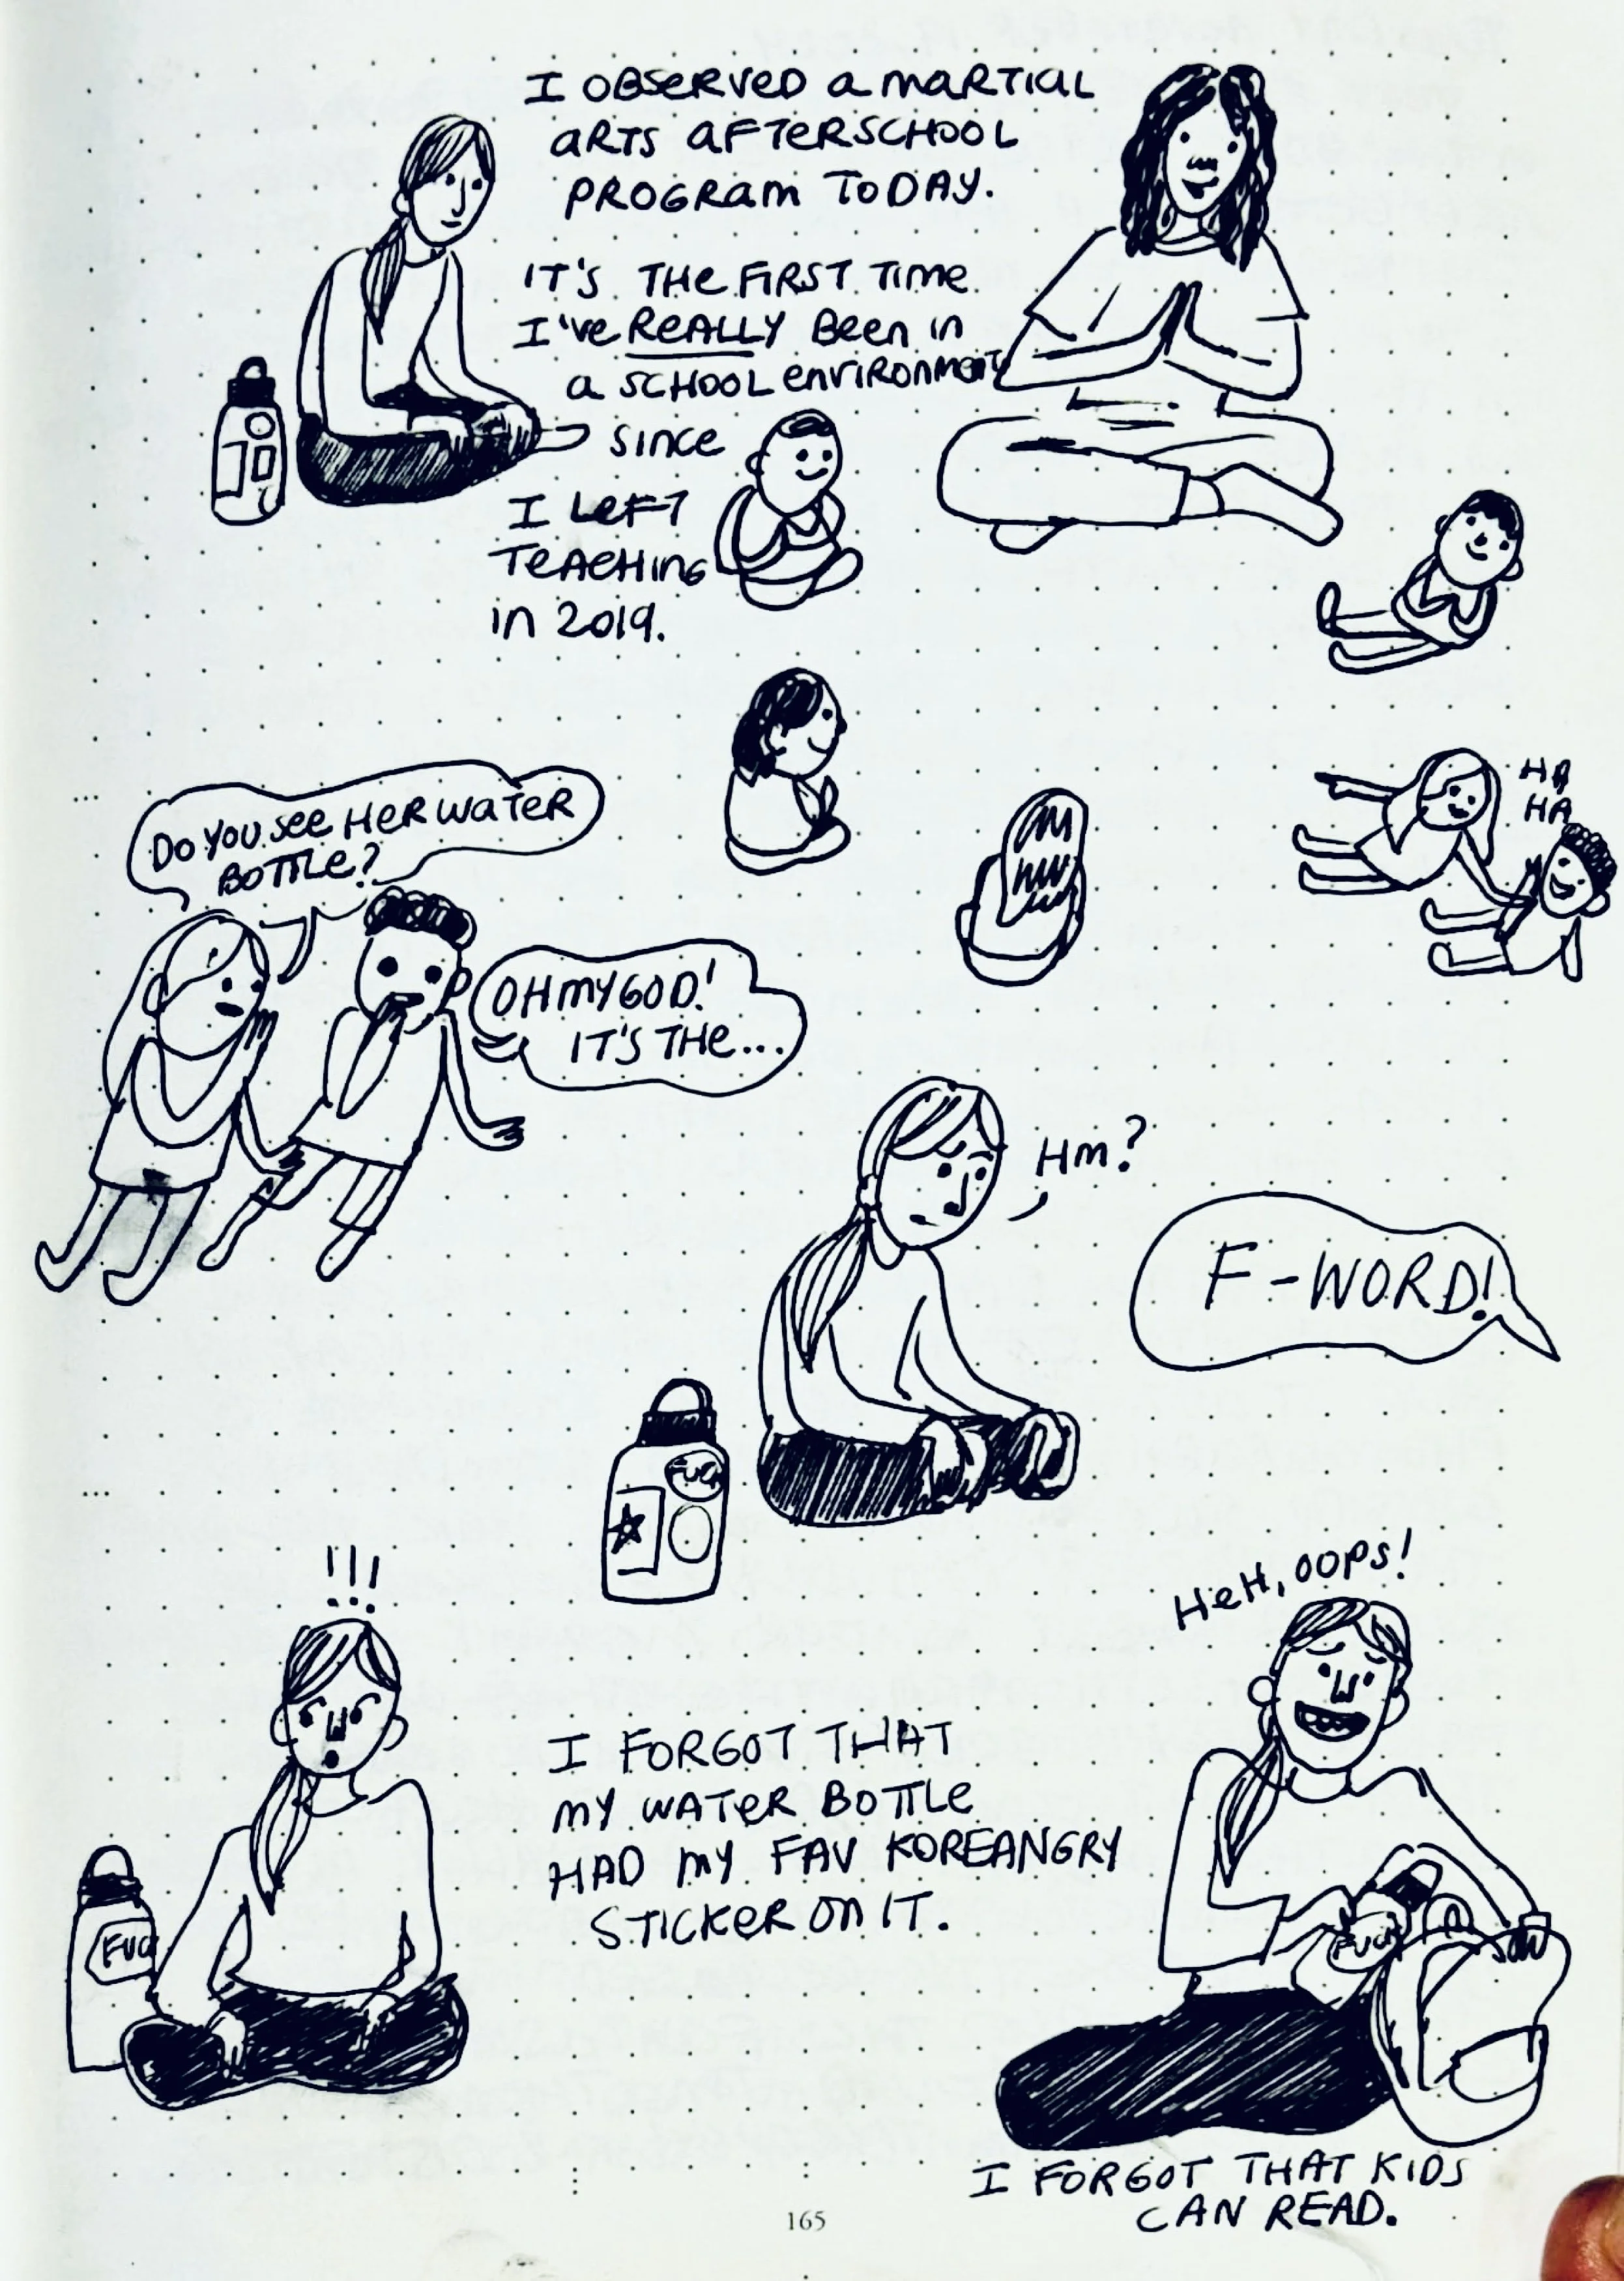 I OBSERVED A MARTIAL
ARTS AFTERSCHOOL
PROGRAM TODAY.
IT'S THE FIRST TIME
I'VE REALLY BEEN IN
A SCHOOL ENVIRONMENT
SINCE
I LEFT
TEACHING
IN 2019.
HA
HA
DO YOU SEE HER WATER
BOTTLE?
OH MY GOD!
IT'S THE...
HM?
F-WORD!
FUC
!!!
HEH, OOPS!
FUC
I FORGOT THAT
MY WATER BOTTLE
HAD MY FAV KOREANGRY
STICKER ON IT.
FUCK
I FORGOT THAT KIDS
CAN READ.
165